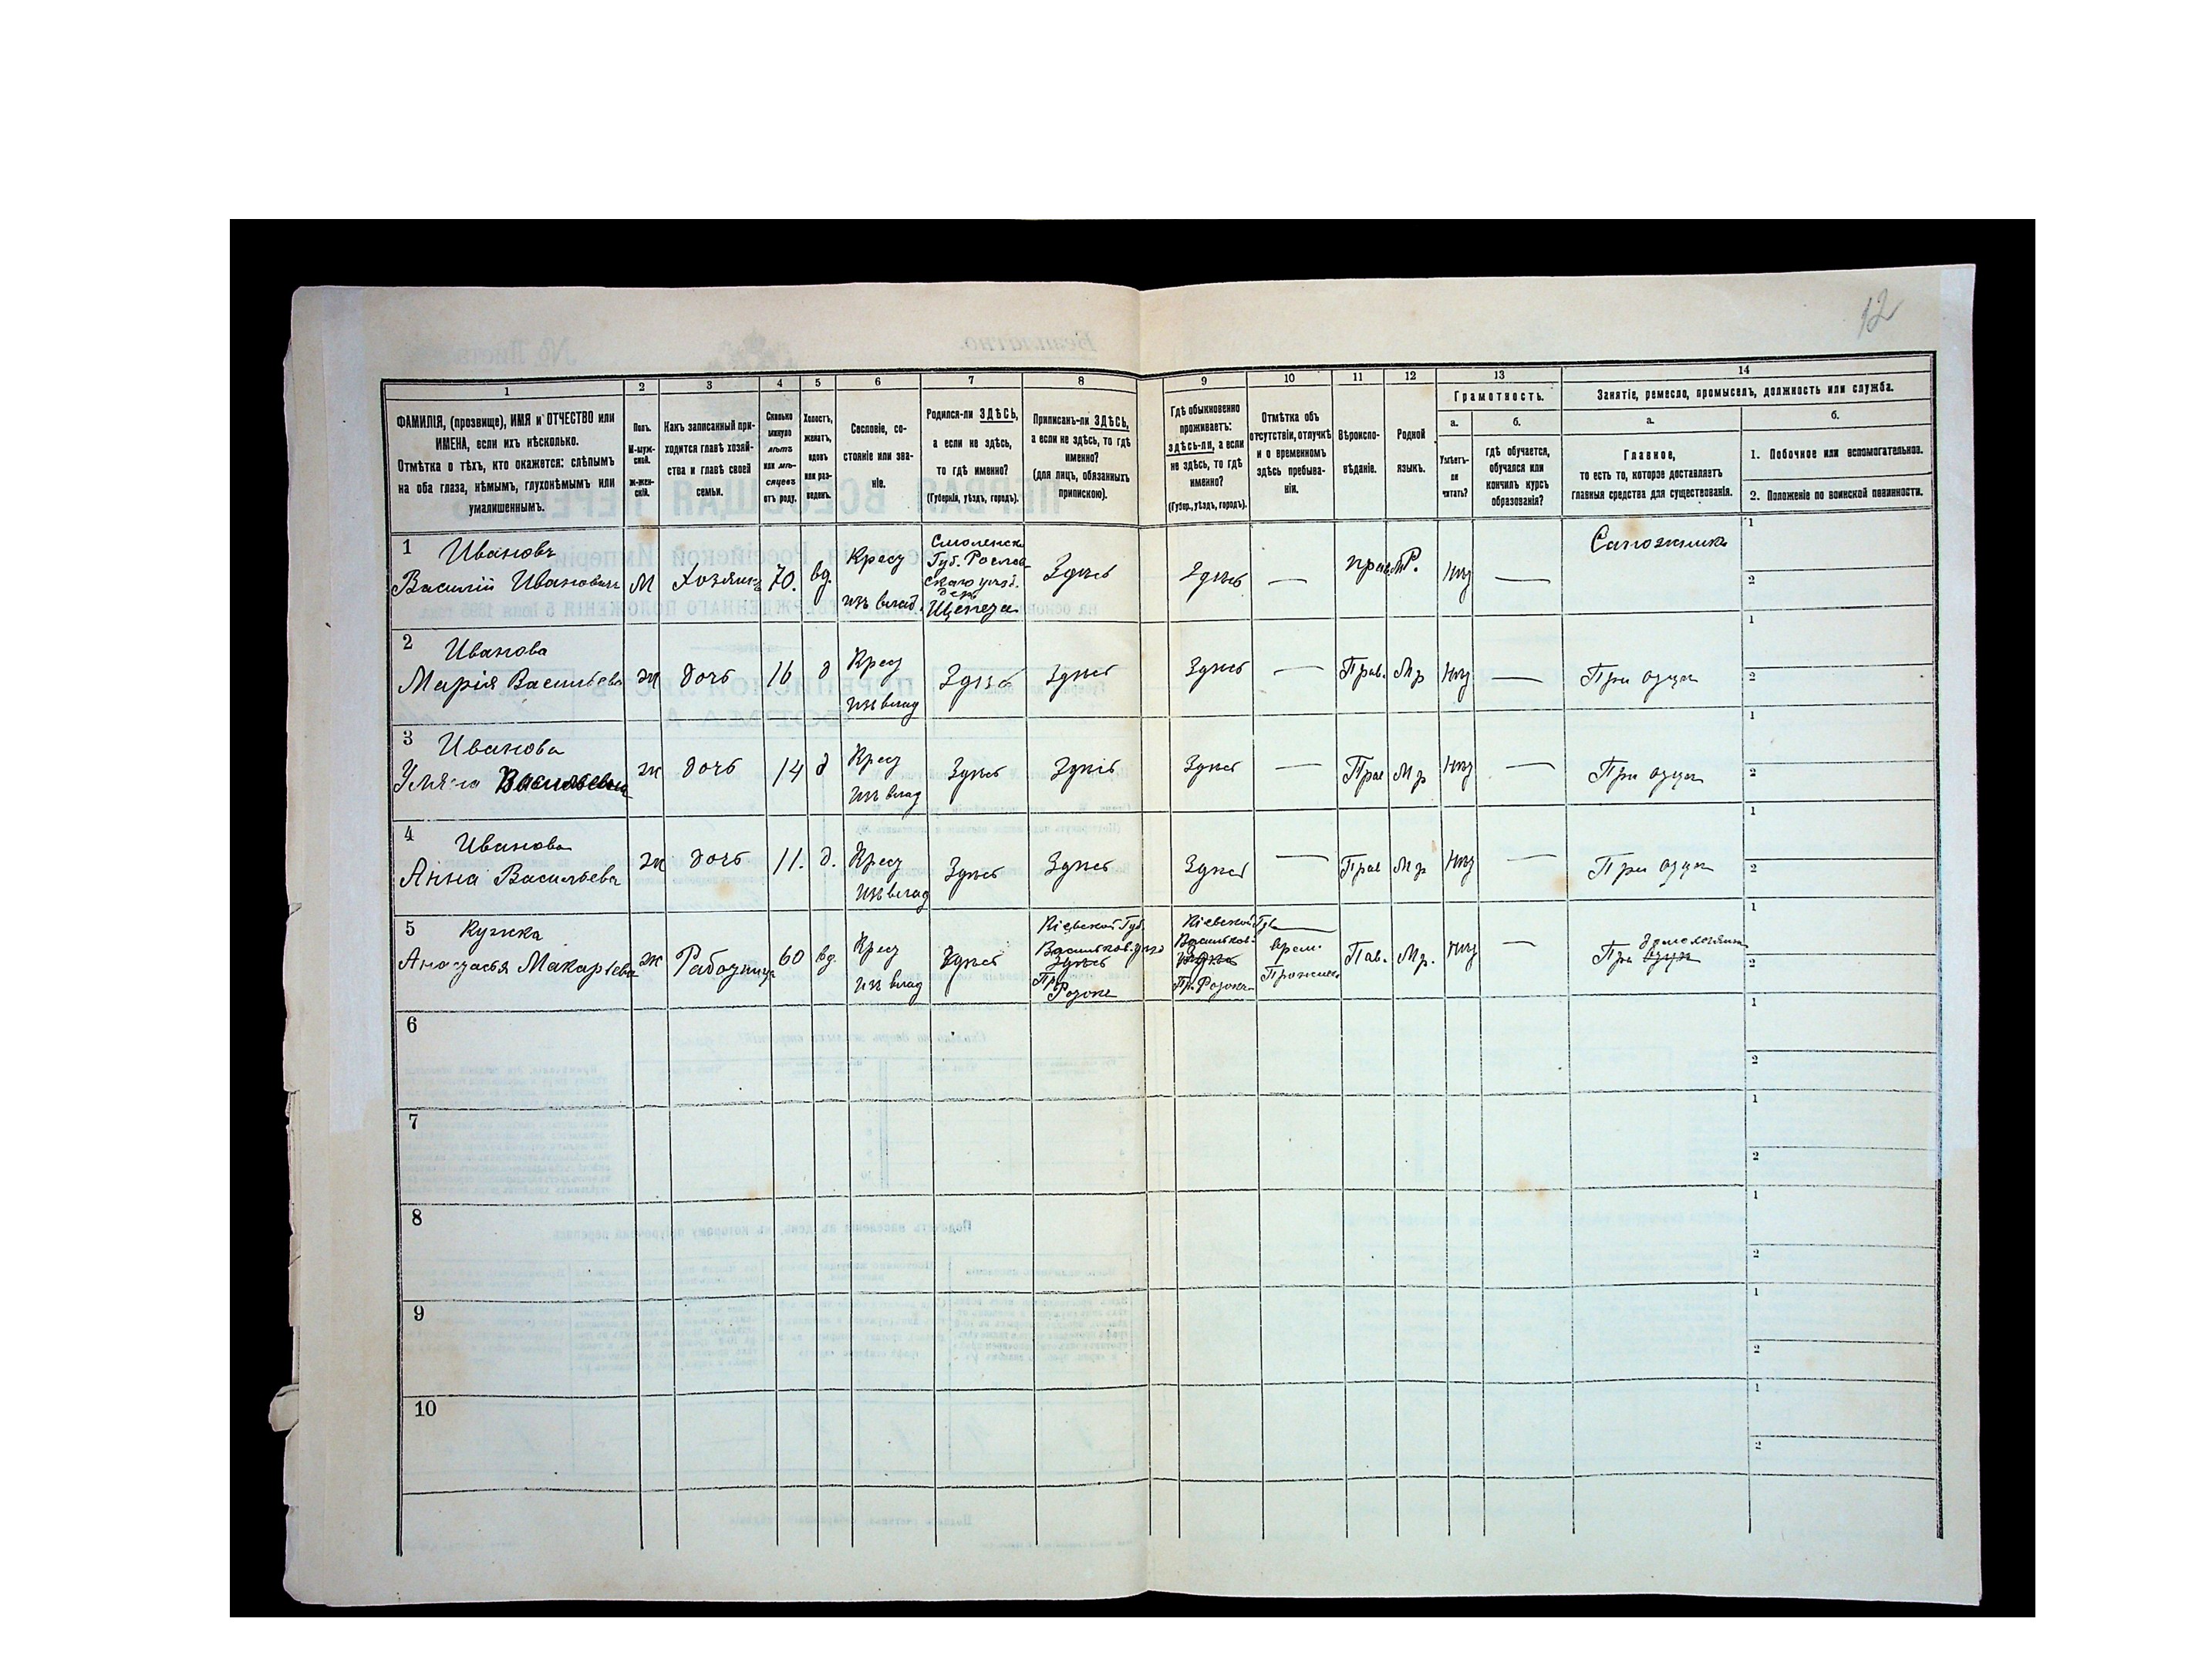 12
1
2
3
4
5
6
7
8
9
10
11
12
13
14
ФАМИЛІЯ, (прозвище), ИМЯ и ОТЧЕСТВО или
ИМЕНА, если ихъ нѣсколько.
Отмѣтка о тѣхъ, кто окажется: слѣпымъ
на оба глаза, нѣмымъ, глухонѣмымъ или
умалишеннымъ.
Полъ.
М-муж-
ской.
ж-жен-
скій.
Какъ записанный при-
ходится главѣ хозяй-
ства и главѣ своей
семьи.
Сколько
минуло
лѣтъ
или мѣ-
сяцевъ
отъ роду.
Холостъ,
женатъ,
вдовъ
или раз-
веденъ.
Сословіе, со-
стояніе или зва-
ніе.
Родился-ли ЗДѢСЬ,
а если не здѣсь,
то гдѣ именно?
(Губернія, уѣздъ, городъ).
Приписанъ-ли ЗДѢСЬ,
а если не здѣсь, то гдѣ
именно?
(для лицъ, обязанныхъ
припискою).
Гдѣ обыкновенно
проживаетъ:
здѣсь-ли, а если
не здѣсь, то гдѣ
именно?
(Губер., уѣздъ, городъ).
Отмѣтка объ
отсутствіи, отлучкѣ
и о временномъ
здѣсь пребыва-
ніи.
Вѣроиспо-
вѣданіе.
Родной
языкъ.
Грамотность.
а.
Умѣетъ-
ли
читать?
б.
гдѣ обучается,
обучался или
кончилъ курсъ
образованія?
Занятіе, ремесло, промыселъ, должность или служба.
а.
Главное,
то есть то, которое доставляетъ
главныя средства для существованія.
б.
1. Побочное или вспомогательное.
2. Положеніе по воинской повинности.
1 Ивановъ
Василій Ивановичъ
М
Хозяинъ
70.
вд.
Крест
изъ влад.
Смоленск
Губ. Рослав
скаго уѣзд.
дер.
Здѣсь
Здѣсь
—
прав.
Р.
—
Сапожникъ
1
2
2 Иванова
Марія Васильева
ж
дочь
16
д
Крест
изъ влад
Здѣсь
Здѣсь
Здѣсь
—
Прав.
Мр
—
При отцѣ
1
2
3 Иванова
Васильева
ж
дочь
14
д
Крест
изъ влад
Здѣсь
Здѣсь
Здѣсь
—
Прав
Мр
—
При отцѣ
1
2
4 Иванова
Анна Васильева
ж
дочь
11.
д.
Крест
изъ влад
Здѣсь
Здѣсь
Здѣсь
—
Прав
Мр
—
При отцѣ
1
2
5
Макарьева
ж
Работница
60
вд.
Крест
изъ влад
Здѣсь
Кіевской Губ.
Васильков.
Здѣсь
Кіевской Губ
Васильков.
врем.
Пав.
Мр.
—
При отцѣ
1
2
6
1
2
7
1
2
8
1
2
9
1
2
10
1
2